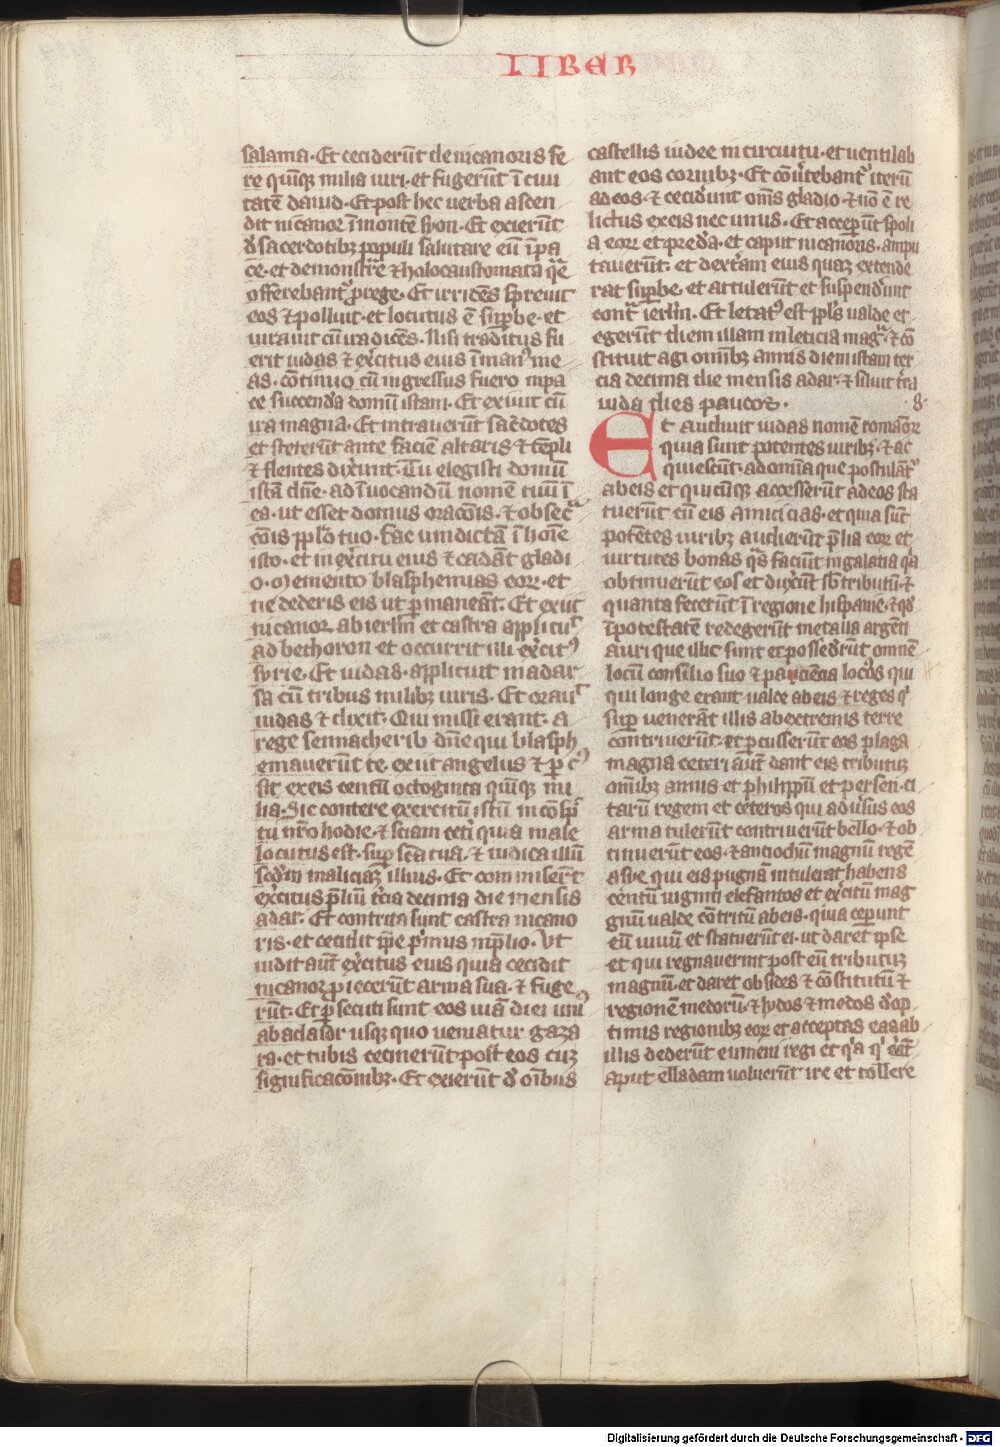 LIBER
salama. Et ceciderūt de nicanoris fe
re quīqꝫ milia uiri. et fugerūt ī ciui
tatē dauid. Et post hec uerba ascen
dit nicanor ī montē syon. Et exierūt
d̓ sacerdotibꝫ populi salutare eū ī pa
ce. et demonstrare holocaustomata que
offerebantᷣ ꝓ rege. Et irridēs spreuit
eos ⁊ polluit. et locutus ē suꝑbe. et
iurauit cū ira dicēs. Nisi traditus fu
erit iudas ⁊ ex̓citus eius ī man᷒ me
as. cōtinuo cū ingressus fuero in pa
ce succendā domū istam. Et exiuit cū
ira magna. Et intrauerūt sac̓dotes
et steterūt ante faciē altaris ⁊ tēpli
⁊ flentes dixerunt. Tu elegisti domū
istā dn̄e. ad īuocandū nomē tuū ī
ea. ut esset domus orac̄onis. ⁊ obsec̄
c̄onis ppl̄o tuo. Fac uindictā ī hoīe
isto. et in ex̓citu eius ⁊ cadāt gladi
o. Memento blasphemias eoꝝ. et
ne dederis eis ut ꝑmaneāt. Et exiit
nicanor ab ierl̄m et castra applicuᷣ
ad bethoron et occurrit illi ex̓cit᷒
syrie. Et iudas applicuit in adar
sa cū tribus milibꝫ uiris. Et orauᷣ
iudas ⁊ dixit. Qui missi erant. a
rege sennacherib dn̄e qui blasph
emauerūt te. exiit angelus ⁊ ꝑc᷒
sit ex eis centū octoginta quīqꝫ mi
lia. Sic contere exercitū istū in cōspc̄
tu nr̄o hodie. ⁊ sciant cet̓i quia male
locutus est. suꝑ sc̄a tua. ⁊ iudica illū
scd̄m maliciā illius. Et commiserūt
ex̓citus p̄liū t̓cia decima die mensis
adar. Et contrita sunt castra nicano
ris. et cecidit ip̄e p̓mus in p̄lio. Vt
uidit aūt ex̓citus eius quia cecidit
nicanor ꝓiecerūt arma sua. ⁊ fuge
rūt. Et ꝑsecuti sunt eos uiā diei uni᷒
ab adasor usqꝫ quo ueniatur gaza
ra. et tubis cecinerūt post eos cuꝫ
significac̄onibꝫ. Et exierūt d̓ oībus
castellis iudee in circuitu. et uentilab
ant eos cornibꝫ. Et cōu̓tebantᷣ iterū
ad eos. ⁊ cecid̓unt om̄s gladio. ⁊ nō ē re
lictus ex eis nec unus. Et acceꝑūt spoli
a eoꝝ et preda. et caput nicanoris. ampu
tauerūt. et dext̓am eius quaꝫ extende
rat suꝑbe. et attulerūt et suspend̓unt
cont̓ ierl̄m. Et letat᷒ est ppl̄s ualde et
egerūt diem illam in leticia mag̓. ⁊ cō
stituit agi omībꝫ annis diem istam ter
cia decima die mensis adar. ⁊ siluit t̓ra
iuda dies paucos. .8.
Et audiuit iudas nomē romanoꝝ
quia sunt potentes uiribꝫ. ⁊ ac
quiescūt. ad omīa que postulātᷣ
ab eis et quicūqꝫ accesserūt ad eos sta
tuerūt cū eis amicicias. et quia sūt
potētes uiribꝫ audierūt p̄lia eoꝝ et
uirtutes bonas q̄s faciūt in galatia q̓a
obtinuerūt eos et duxerūt sb̄ tributū. ⁊
quanta fecerūt ī regione hispanie. ⁊ qd̓
ī potestatē redegerūt metalla argēti
auri que illic sunt et possed̓rūt omnē
locū consilio suo ⁊ paciēcia locos qui
qui longe erant ualde ab eis ⁊ reges q̓
suꝑ uenerāt illis ab extremis terre
contriuerūt. et ꝑcusserūt eos plaga
magna ceteri aūt dant eis tributuꝫ
omībꝫ annis et philippū et persen. ci
tarū regem et ceteros qui adu̓sus eos
arma tulerūt contriuerūt bello. ⁊ ob
tinuerūt eos. ⁊ antiochū magnū regē
asye. qui eis pugnā intulerat habens
centū uiginti elefantos et ex̓citū mag
gnū ualde cōtritū ab eis. quia ceꝑunt
eū uiuū et statuerūt ei. ut daret ipse
et qui regnauerint post eū tributuꝫ
magnū. et daret obsides ⁊ cōstitutū ⁊
regionē medorū. ⁊ lydos ⁊ medos d̓ op
timis regionibꝫ eoꝝ et acceptas eas ab
illis dederūt eumeni regi et q̓a q̓ erāt
aput elladam uoluerūt ire et tollere
Digitalisierung gefördert durch die Deutsche Forschungsgemeinschaft - DFG